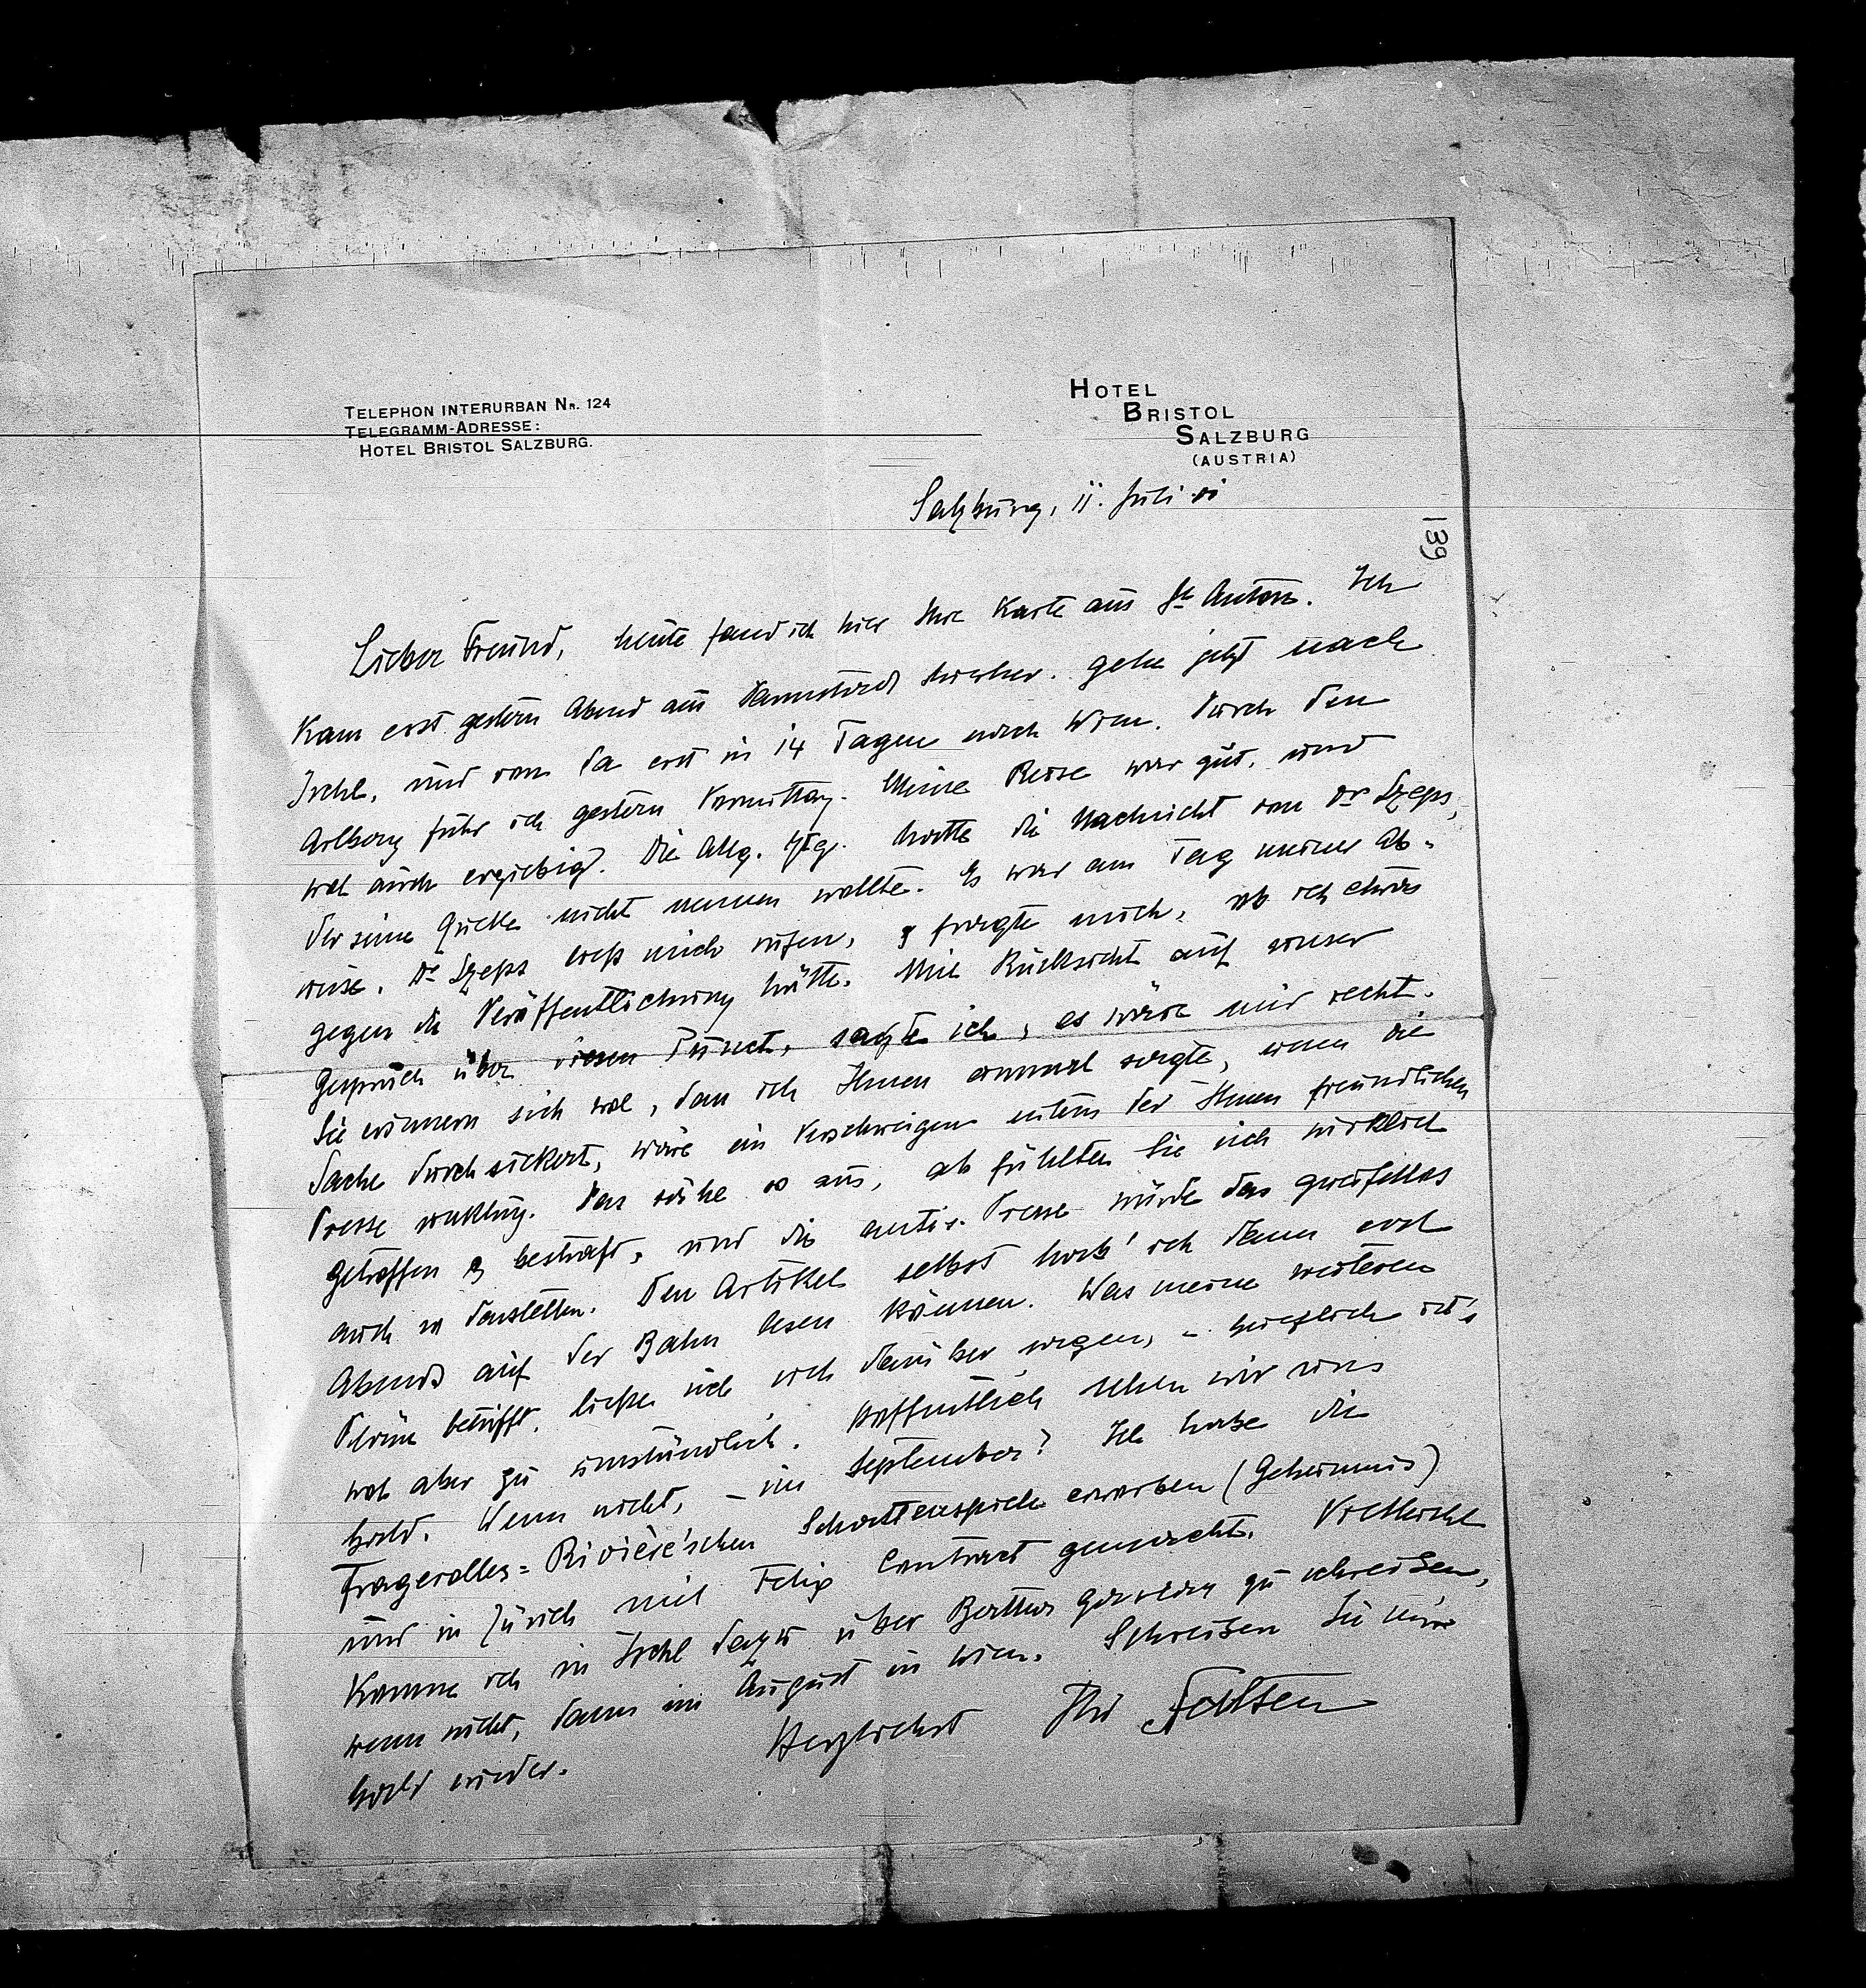 TELEPHON INTERURBAN Nr. 124
TELEGRAMM-ADRESSE:
HOTEL BRISTOL SALZBURG.
HOTEL
BRISTOL
SALZBURG
(AUSTRIA)
Salzburg, 11. Juli 01
139
Lieber Freund, heute fand ich hier Ihre Karte aus St. Anton. Ich
kam erst gestern Abend aus Darmstadt hierher. gehe jetzt nach
Ischl, und von da erst in 14 Tagen nach Wien. Durch den
Arlberg fuhr ich gestern Vormittag. Meine Reise war gut, und
wol auch ergiebig. Die Allg. Ztg. hatte die Nachricht von Dr Szeps,
der seine Quelle nicht nennen wollte. Es war am Tag meiner Ab-
reise. Dr Szeps ließ mich rufen, & fragte mich, ob ich etwas
gegen die Veröffentlichung hätte. Mit Rücksicht auf unser
Gespräch über diesen Punct, sagte ich, es wäre mir recht.
Sie erinnern sich wol, dass ich Ihnen einmal sagte, wenn die
Sache durchsickert, wäre ein Verschweigen seitens der Ihnen freundlichen
Presse unklug. Das sähe so aus, als fühlten Sie sich wirklich
getroffen & bestraft, und die antis. Presse würde das zweifellos
auch so darstellen. Den Artikel selbst hab' ich dann erst
Abends auf der Bahn lesen können. Was meine weiteren
Pläne betrifft, ließe sich viel darüber sagen, – brieflich ist's
wol aber zu umständlich. Hoffentlich sehen wir uns
bald. Wenn nicht, – im September? Ich habe die
Fragerolles-Rivière'schen Schattenspiele erworben (Geheimnis)
und in Zürich mit Felix Contract gemacht. Vielleicht
komme ich in Ischl dazu über Berthas Garlan zu schreiben,
wenn nicht, dann im August in Wien. Schreiben Sie mir
bald wieder.
Herzlichst Ihr Salten